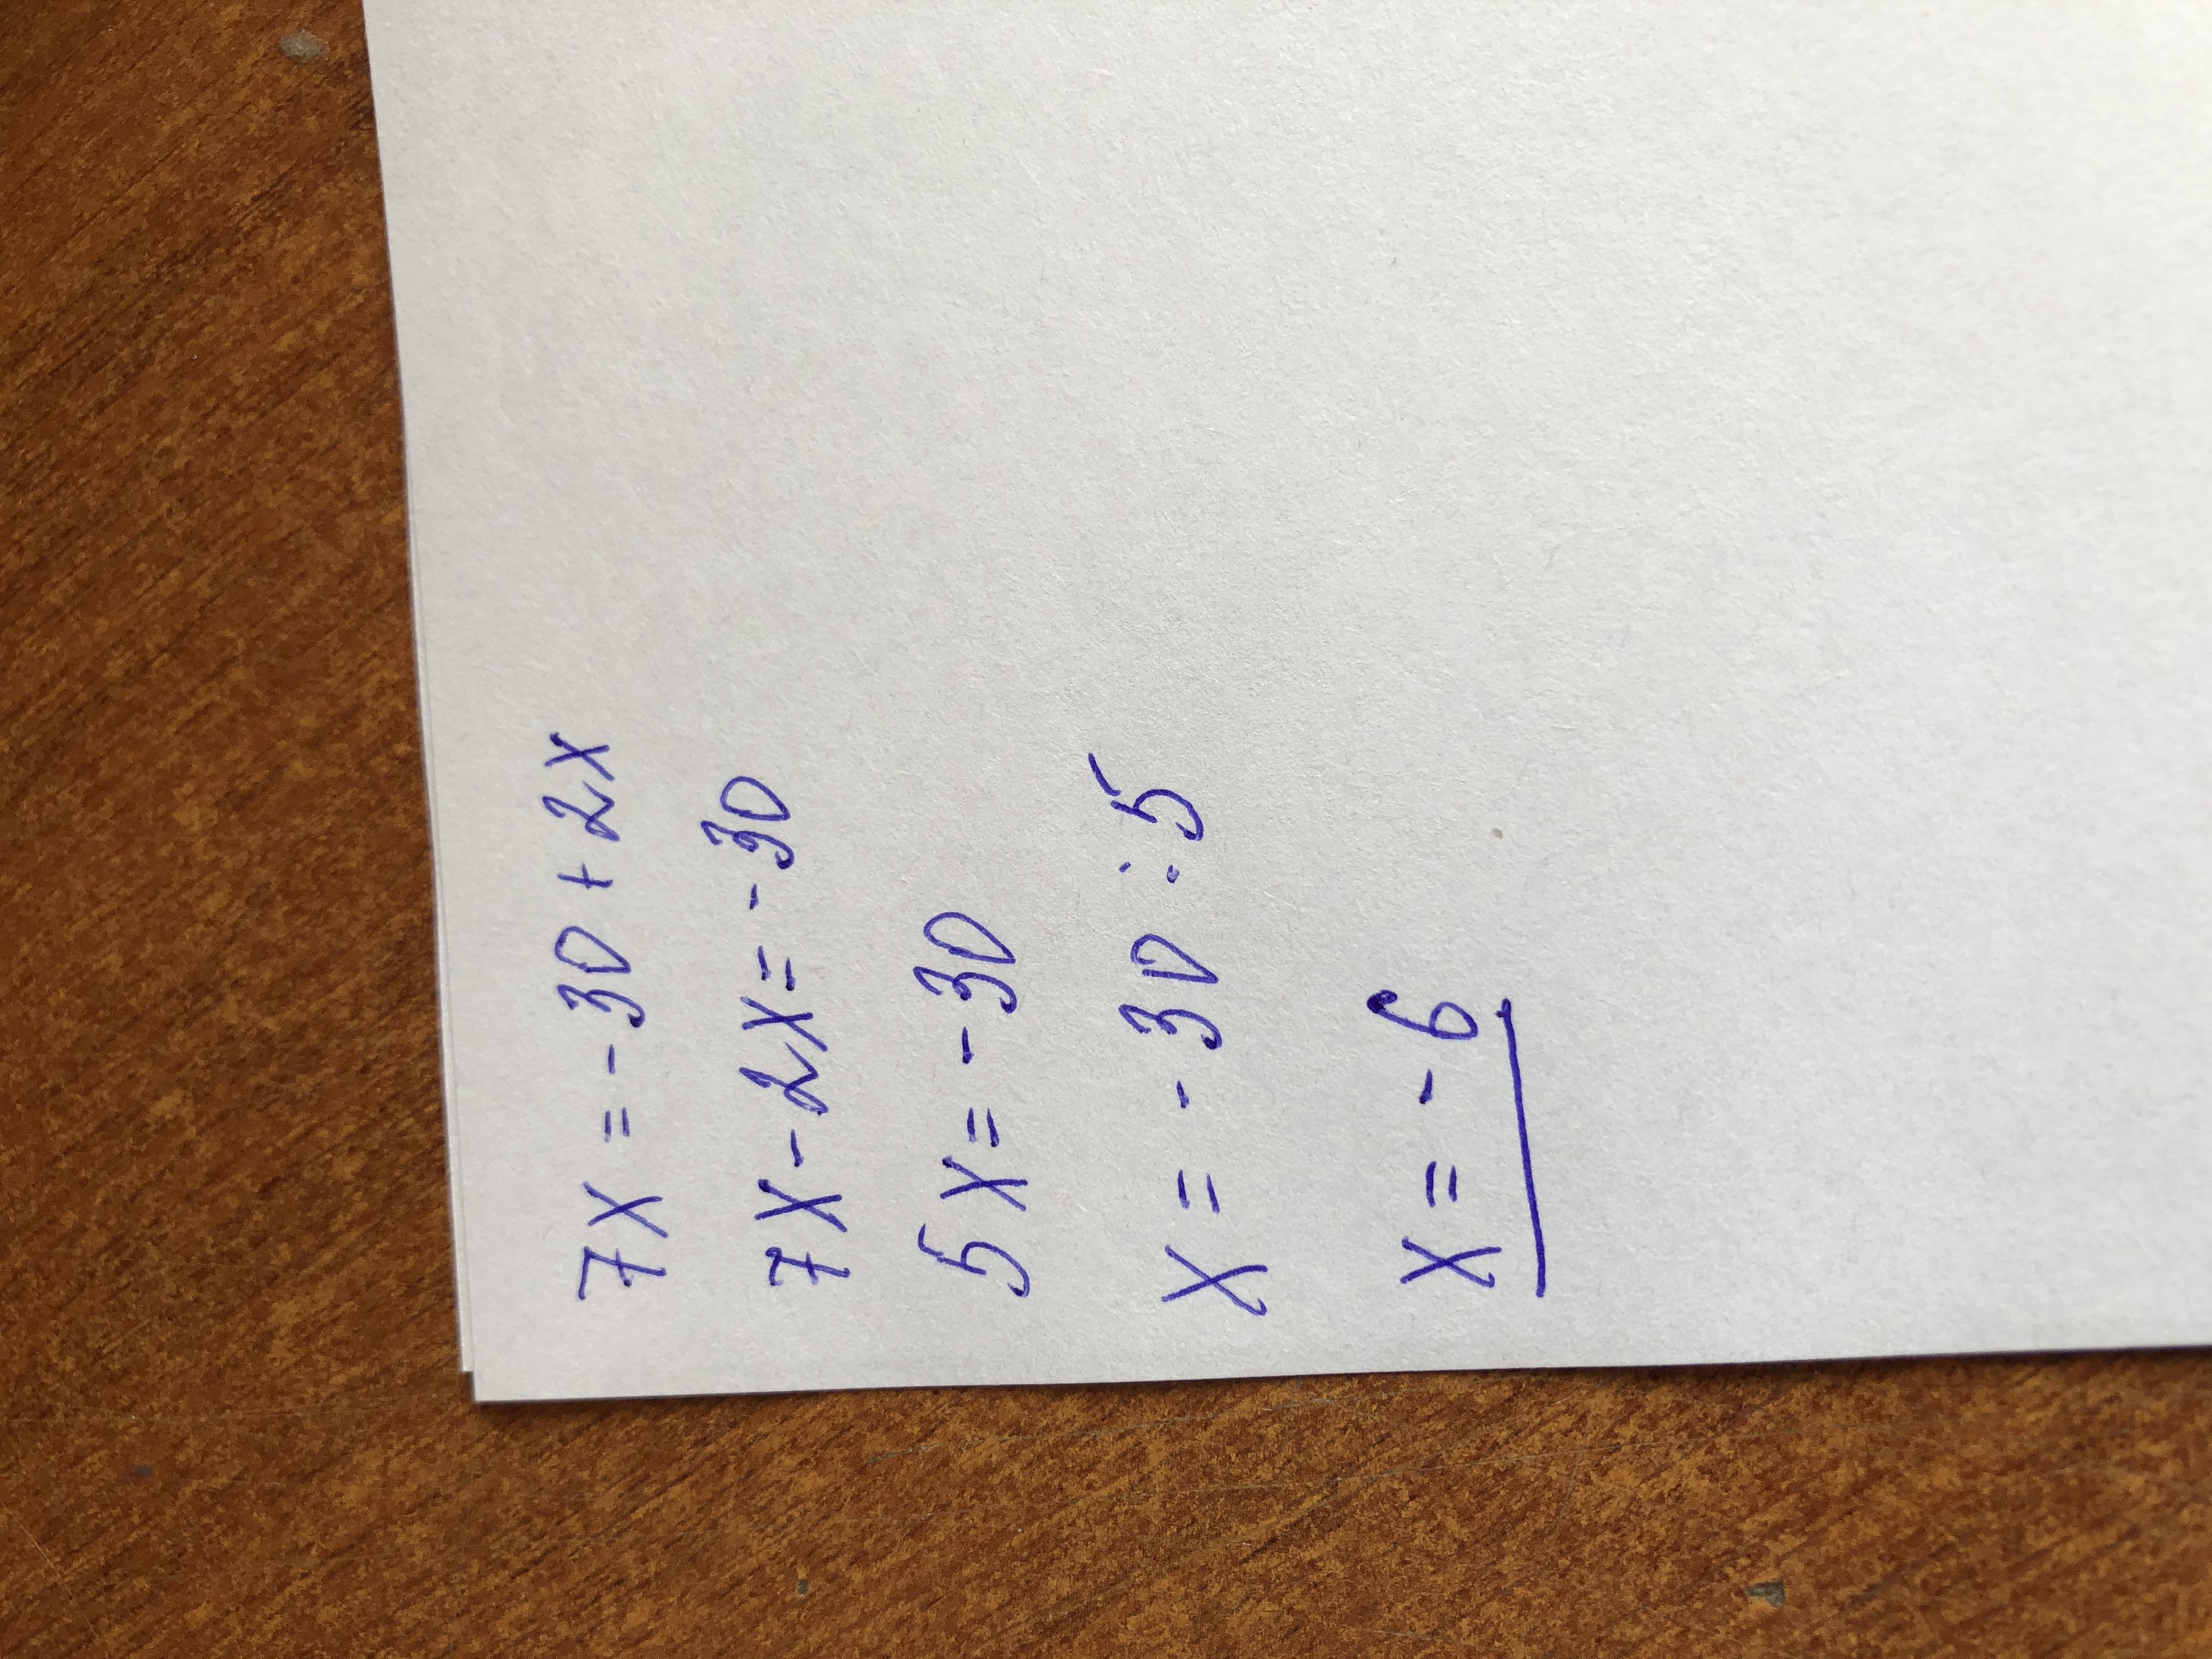 7x = -30 + 2x
7x - 2x = -30
5x = -30
x = -30 : 5
x = -6